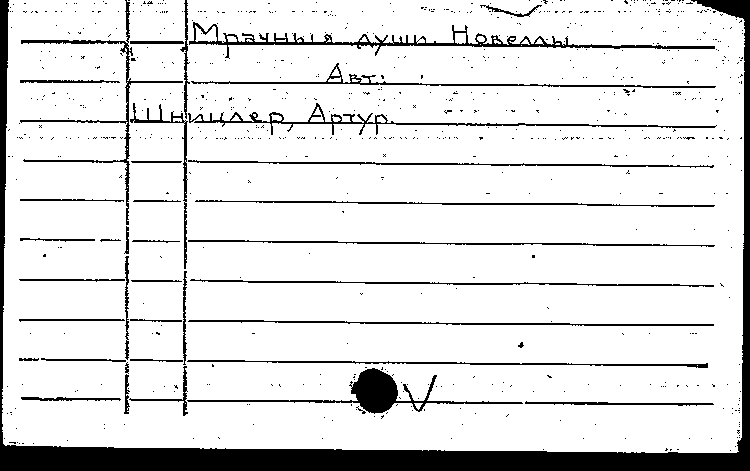 Мрачныя души. Новеллы
Авт.:
Шницлер, Артур.